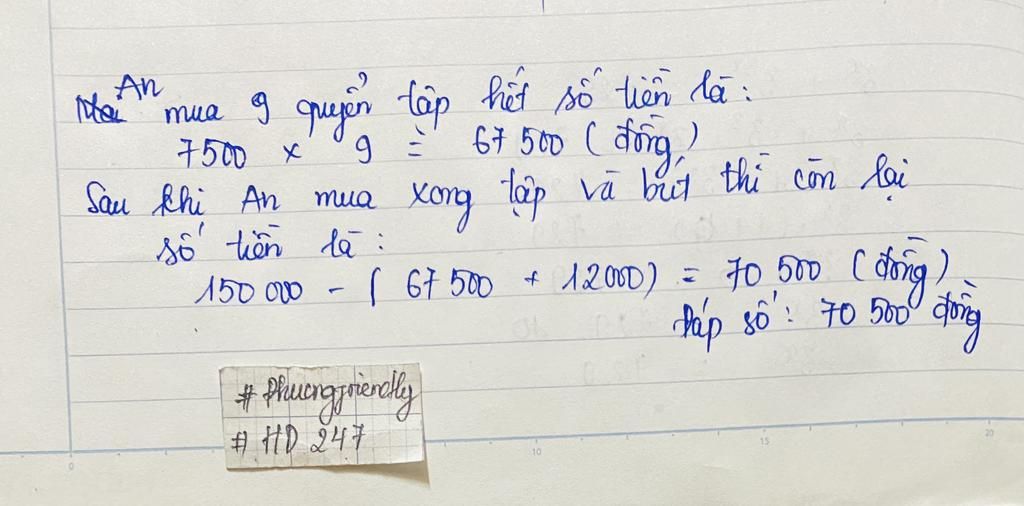 An mua 9 quyển tập hết số tiền là:
7500 x 9 = 67 500 (đồng)
Sau khi An mua xong tập và bút thì còn lại
số tiền là:
150 000 - ( 67 500 + 12000) = 70 500 (đồng)
Đáp số: 70 500 đồng
# Phuongfriendly
# HD 247
0 10 15 20